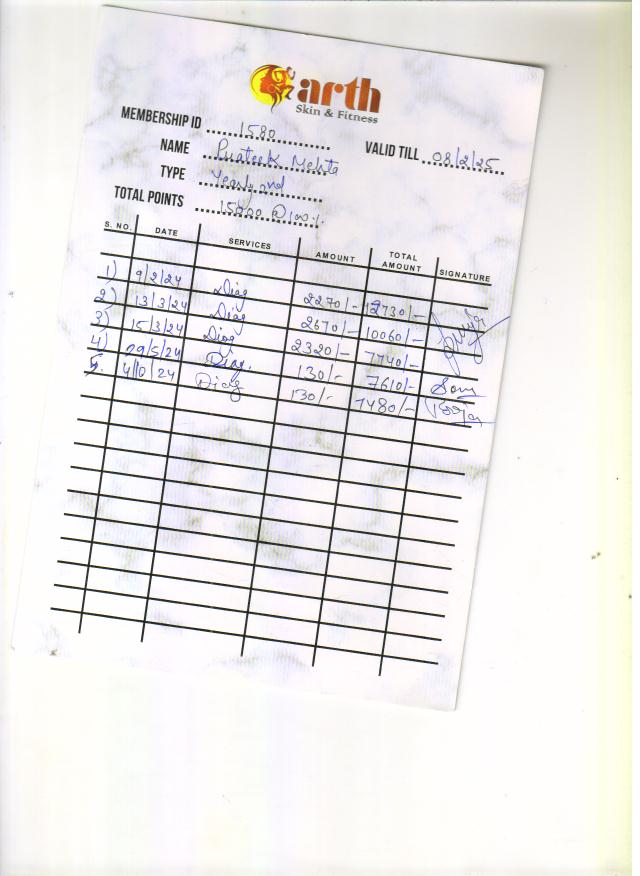 arth
Skin & Fitness
MEMBERSHIP ID 1580
VALID TILL 08/2/25
NAME Prateek Mehta
TYPE Yearly 2nd
TOTAL POINTS 15000 @100%.
S. NO. DATE SERVICES AMOUNT TOTAL AMOUNT SIGNATURE
1) 9/2/24 Diag 2270/- 12730/-
2) 13/3/24 Diag 2670/- 10060/-
3) 15/3/24 Diag 2320/- 7740/-
4) 29/5/24 Diag. 130/- 7610/- Sony
5. 4/10/24 Diag 130/- 7480/-